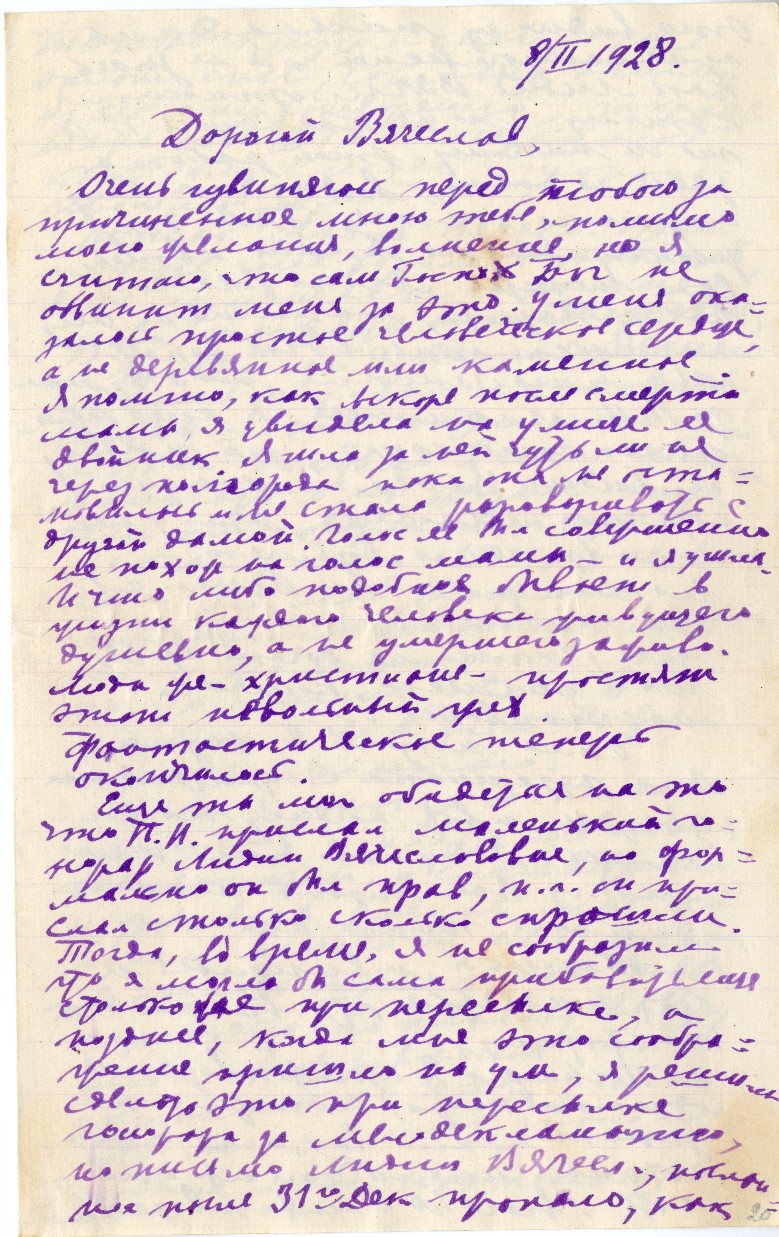 8/II 1928.
Дорогой Вячеслав,
Очень извиняюсь перед тобою за
причиненное мною тебе, помимо
моего желания, волнение, но я
считаю, что сам Господь Бог не
обвинит меня за это. у меня ока=
залось простое человеческое сердце,
а не деревянное или каменное.
Я помню, как вскоре после смерти
мамы, я увидела на улице ее
двойник. Я шла за ней чуть ли не
через полгорода пока она не оста=
новилась и не стала разговаривать с
другой дамой. Голос ее был совершенно
не похож на голос мамы – и я ушла.
И что либо подобное бывает в
жизни каждого человека живущего
душевно, а не умершего заживо.
Люди же – христиане – простят
этот невольный грех.
Фантастическое теперь
окончилось.
Еще ты мог обидеться на то
что П.И. прислал маленький го=
норар Лидии Вячеславовне, но фор=
мально он был прав, п.ч. он при=
слал столько сколько спросили.
Тогда, во время, я не сообразила
что я могла бы сама прибавить еще
столько же при пересылке, а
позднее, когда мне это сообра=
жение пришло на ум, я решила
сделать это при пересылке
гонорара за мелодекламацию,
но письмо Лидии Вячесл., послан=
ное мне 31го Дек пропало, как
25